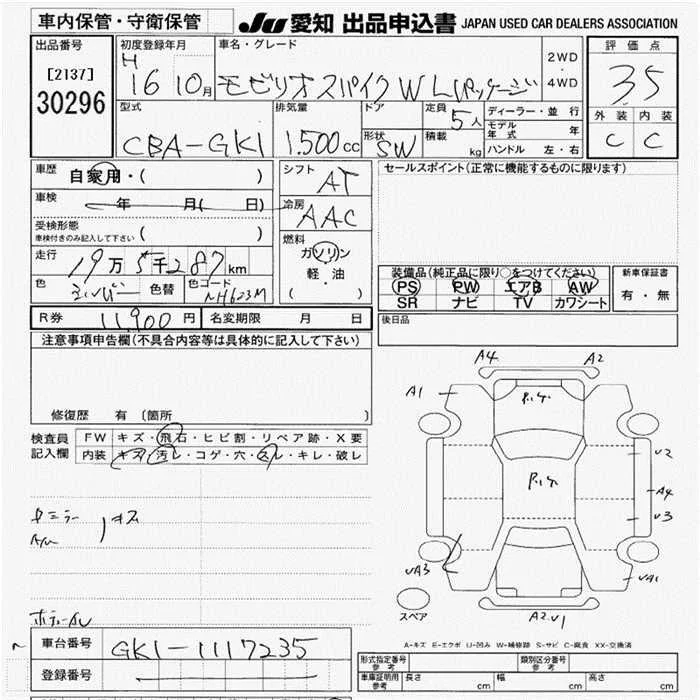 車内保管・守衛保管
JU 愛知 出品申込書 JAPAN USED CAR DEALERS ASSOCIATION
出品番号
[2137]
30296
初度登録年月
H 16 10月
車名・グレード
モビリオスパイク W Lパッケージ
2WD
4WD
評価点
3.5
外装 内装
C C
型式
CBA-GK1
排気量
1.500cc
ドア
形状
SW
定員
5人
積載
kg
ディーラー・並行
モデル年式 年
ハンドル 左・右
車歴
自家用・( )
車検
年 月( 日)
受検形態
車検付きのみ記入して下さい ( )
走行
19万5千287km
色
シルバー
色替
色コード
NH623M
シフト
AT
冷房
AAC
燃料
ガソリン
軽・油
( ・ )
セールスポイント(正常に機能するものに限ります)
装備品(純正品に限り○をつけてください)
PS PW エアB AW
SR ナビ TV カワシート
新車保証書
有・無
R券 11,900円 名変期限 月 日
後日品
注意事項申告欄(不具合内容等は具体的に記入して下さい)
修復歴 有 〔箇所 〕
検査員
記入欄
FW キズ・飛石・ヒビ割・リペア跡・X要
内装 キズ・汚レ・コゲ・穴・スレ・キレ・破レ
A4 A2
A1
U2
A4
U3
UA3
UA1
スペア
A2.U1
A-キズ E-エクボ U-凹み W-補修跡 S-サビ C-腐食 XX-交換済
車台番号
GK1-1117235
登録番号
形式指定番号 参考
類別区分番号 参考
車庫証明用 参考
長さ cm 幅 cm 高さ cm